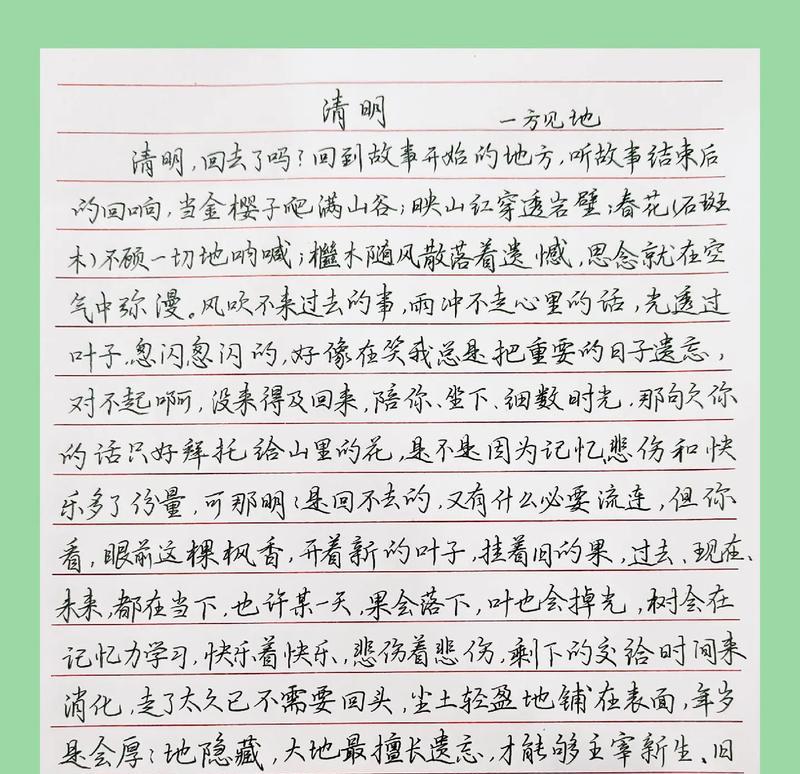 清明
一方见地
清明，回去了吗？回到故事开始的地方，听故事结束后
的回响，当金樱子爬满山谷；映山红穿透岩壁；春花（石斑
木）不顾一切地呐喊；檵木随风散落着遗憾，思念就在空
气中弥漫。风吹不来过去的事，雨冲不走心里的话，光透过
叶子，忽闪忽闪的，好像在笑我总是把重要的日子遗忘，
对不起啊，没来得及回来，陪你、坐下、细数时光，那句欠你
的话只好拜托给山里的花，是不是因为记忆，悲伤和快
乐多了份量，可那明明是回不去的，又有什么必要流连，但你
看，眼前这棵枫香，开着新的叶子，挂着旧的果，过去、现在、
未来，都在当下，也许某一天，果会落下，叶也会掉光，树会在
记忆力学习，快乐着快乐，悲伤着悲伤，剩下的交给时间来
消化，走了太久已不需要回头，尘土轻盈地铺在表面，年岁
是会厚厚地隐藏，大地最擅长遗忘，才能够主宰新生、旧